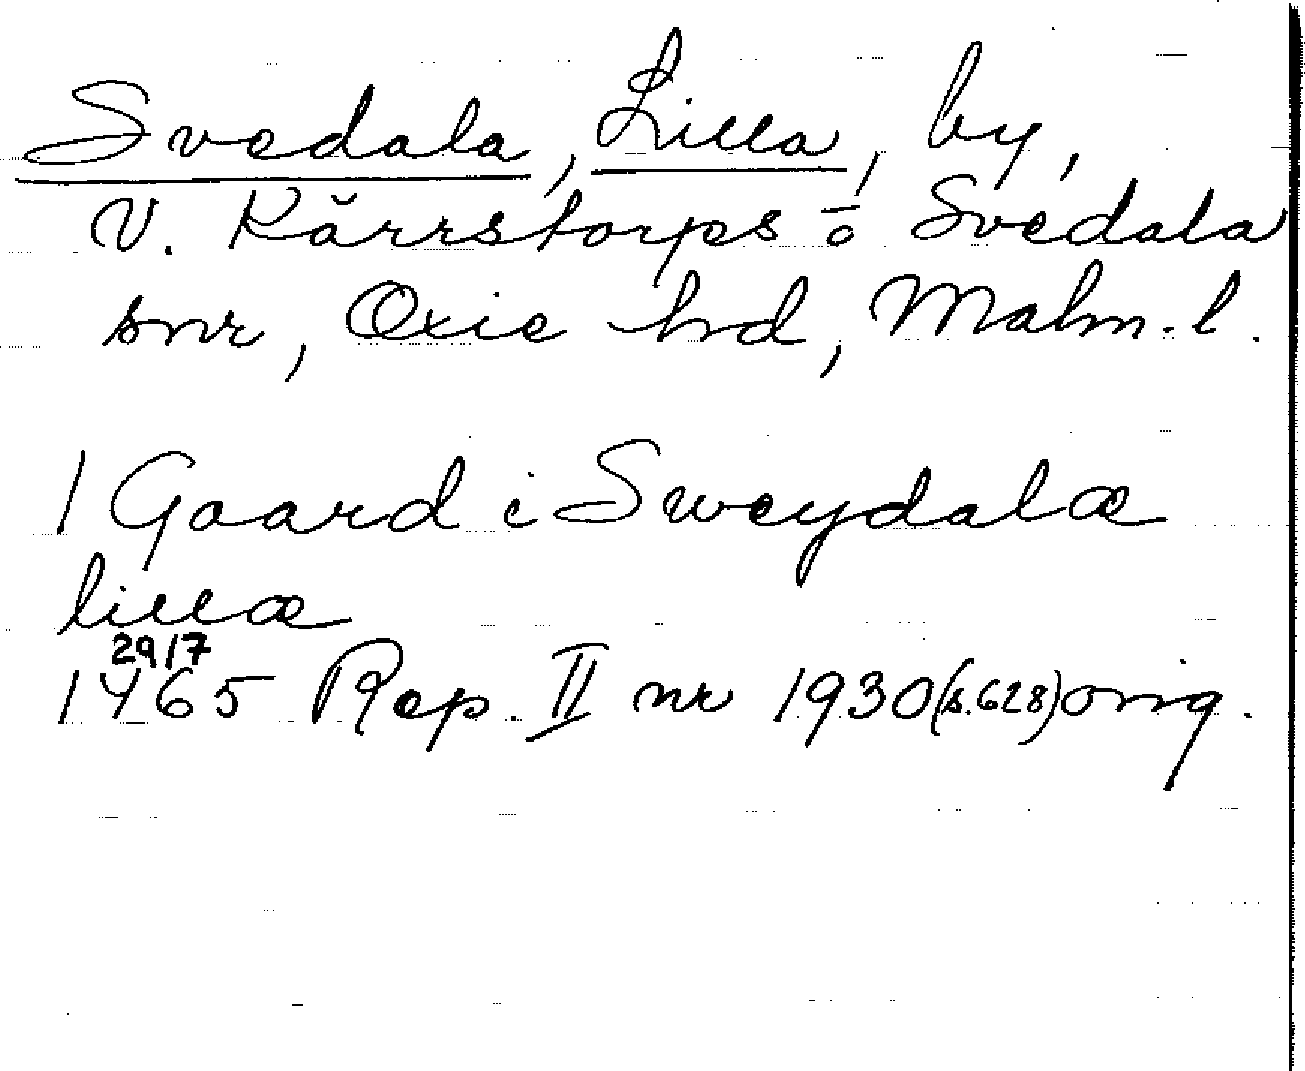 Svedala, Lilla, by,
V. Kärrstorps o Svedala
snr, Oxie hd, Malm. l.
1 Gaard i Sweydalæ
lillæ
29/7
1465 Rep. II nr 1930 (s. 628) orig.